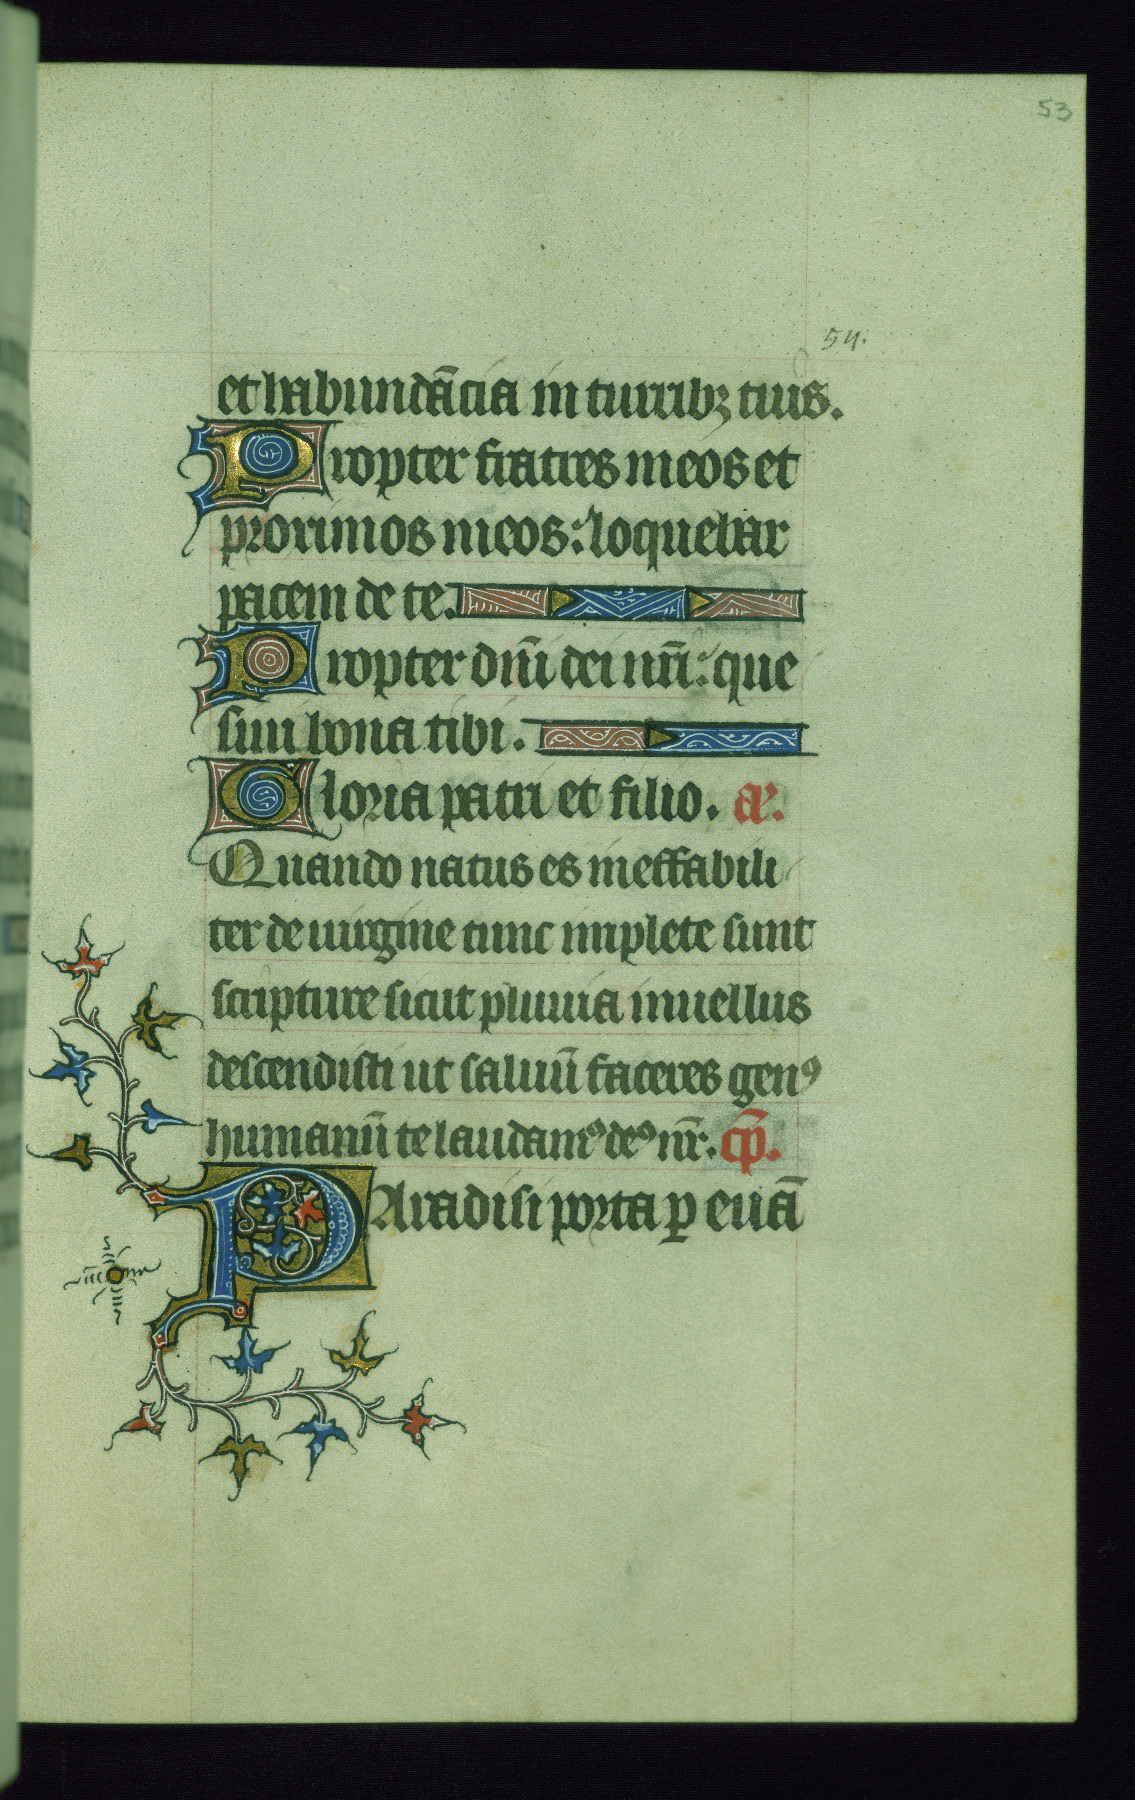 53
54.
et habundācia in turribꝫ tuis.
Propter fratres meos et
proximos meos: loquebar
pacem de te.
Propter dn̄i dei nr̄i: que
siui bona tibi.
Gloria patri et filio. añ.
Quando natus es ineffabili
ter de uirgine tunc implete sunt
scripture sicut pluuia in uellus
descendisti ut saluū faceres genꝰ
humanū te laudamꝰ deꝰ nr̄. cp̄.
PAradisi porta ꝑ euā